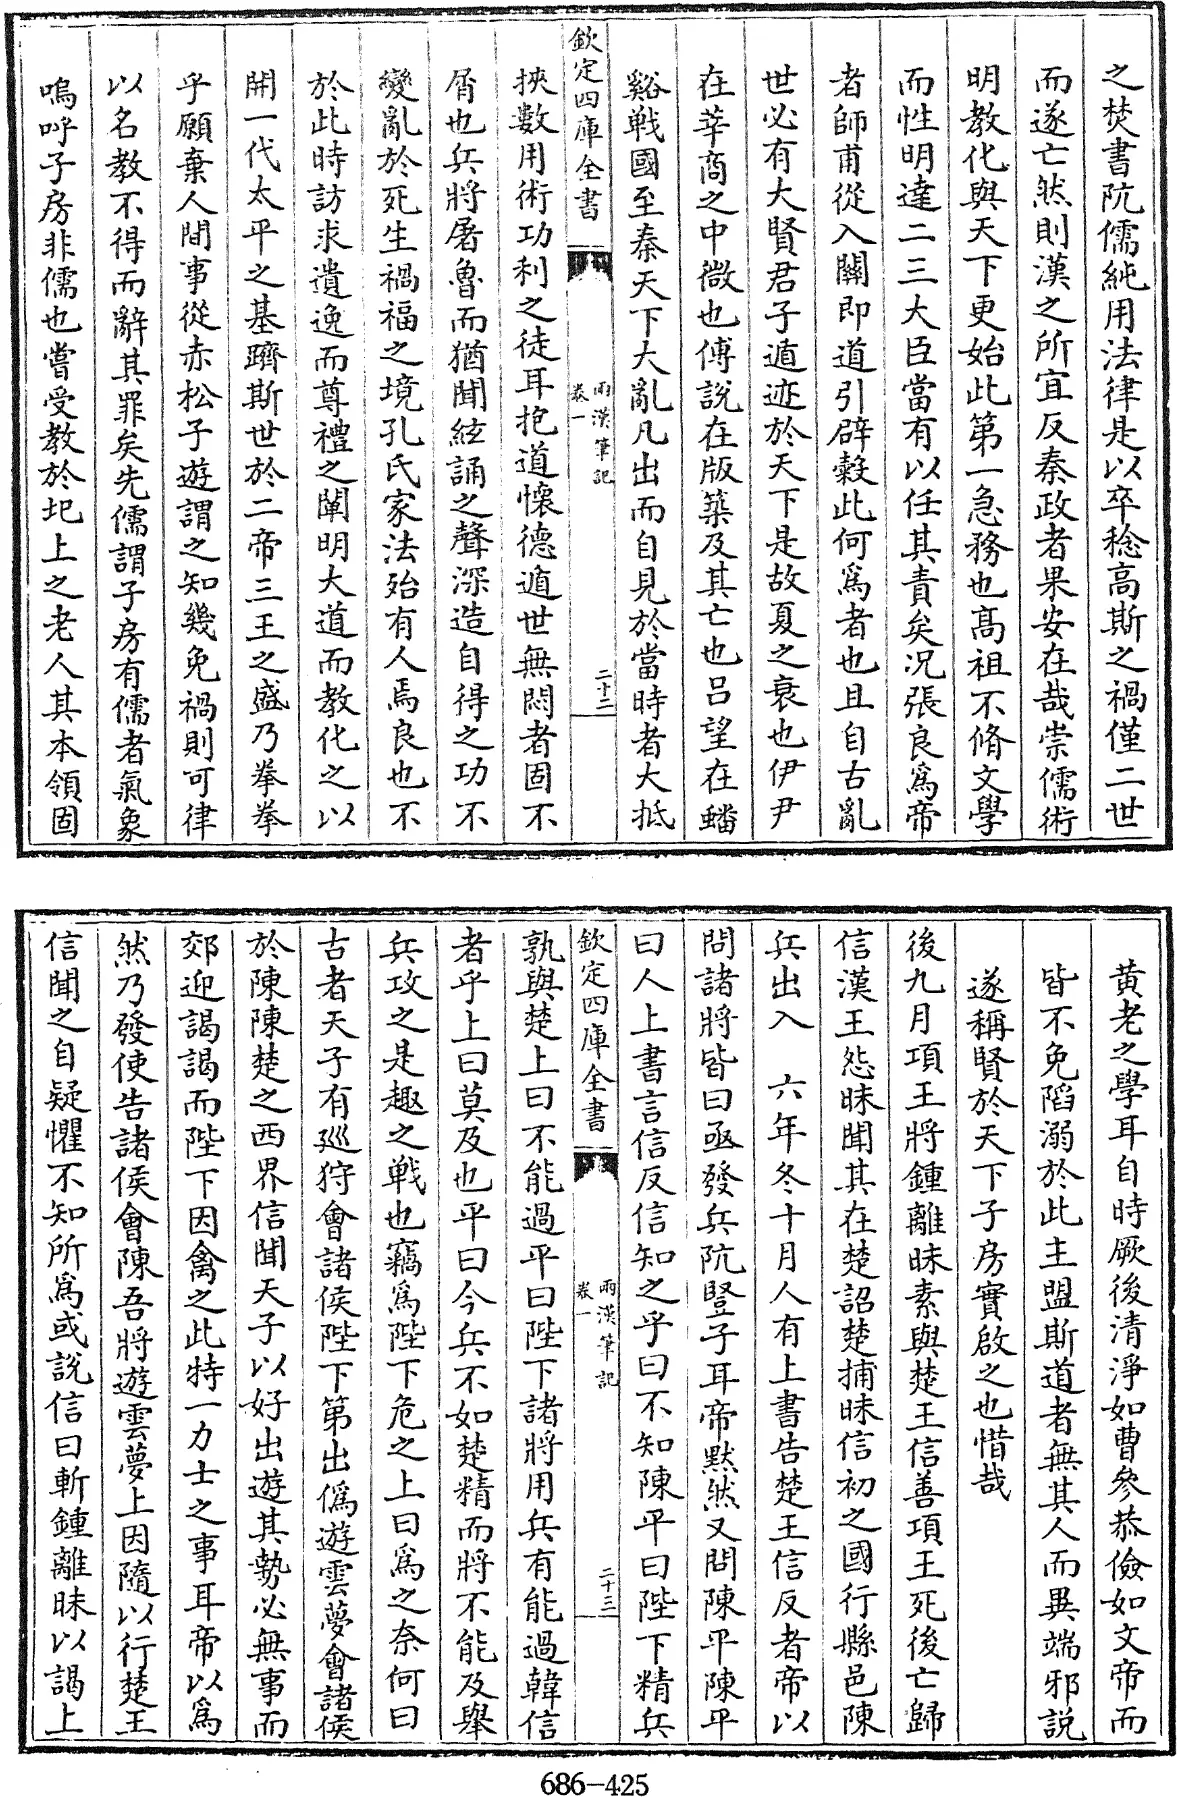 之焚書阬儒純用法律是以卒稔高斯之禍僅二世
而遂亡然則漢之所宜反秦政者果安在哉崇儒術
明教化與天下更始此第一急務也髙祖不脩文學
而性明達二三大臣當有以任其責矣况張良為帝
者師甫從入關即道引辟穀此何為者也且自古亂
世必有大賢君子遁迹於天下是故夏之衰也伊尹
在莘商之中微也傅說在版築及其亡也吕望在蟠
谿戰國至秦天下大亂凡出而自見於當時者大抵
欽定四庫全書
兩漢筆記
卷一
二十二
挾數用術功利之徒耳抱道懷德遁世無悶者固不
屑也兵將屠魯而猶聞絃誦之聲深造自得之功不
變亂於死生禍福之境孔氏家法殆有人焉良也不
於此時訪求遺逸而尊禮之闡明大道而教化之以
開一代太平之基躋斯世於二帝三王之盛乃拳拳
乎願棄人間事從赤松子遊謂之知幾免禍則可律
以名教不得而辭其罪矣先儒謂子房有儒者氣象
嗚呼子房非儒也嘗受教於圯上之老人其本領固
黄老之學耳自時厥後清淨如曹參恭儉如文帝而
皆不免陷溺於此主盟斯道者無其人而異端邪説
遂稱賢於天下子房實啟之也惜哉
後九月項王將鍾離昧素與楚王信善項王死後亡歸
信漢王怨昧聞其在楚詔楚捕昧信初之國行縣邑陳
兵出入 六年冬十月人有上書告楚王信反者帝以
問諸將皆曰亟發兵阬豎子耳帝默然又問陳平陳平
曰人上書言信反信知之乎曰不知陳平曰陛下精兵
欽定四庫全書
兩漢筆記
卷一
二十三
孰與楚上曰不能過平曰陛下諸將用兵有能過韓信
者乎上曰莫及也平曰今兵不如楚精而將不能及舉
兵攻之是趣之戰也竊為陛下危之上曰為之奈何曰
古者天子有廵狩會諸侯陛下第出偽遊雲夢會諸侯
於陳陳楚之西界信聞天子以好出遊其勢必無事而
郊迎謁謁而陛下因禽之此特一力士之事耳帝以為
然乃發使告諸侯會陳吾將遊雲夢上因隨以行楚王
信聞之自疑懼不知所為或說信曰斬鍾離昧以謁上
686-425